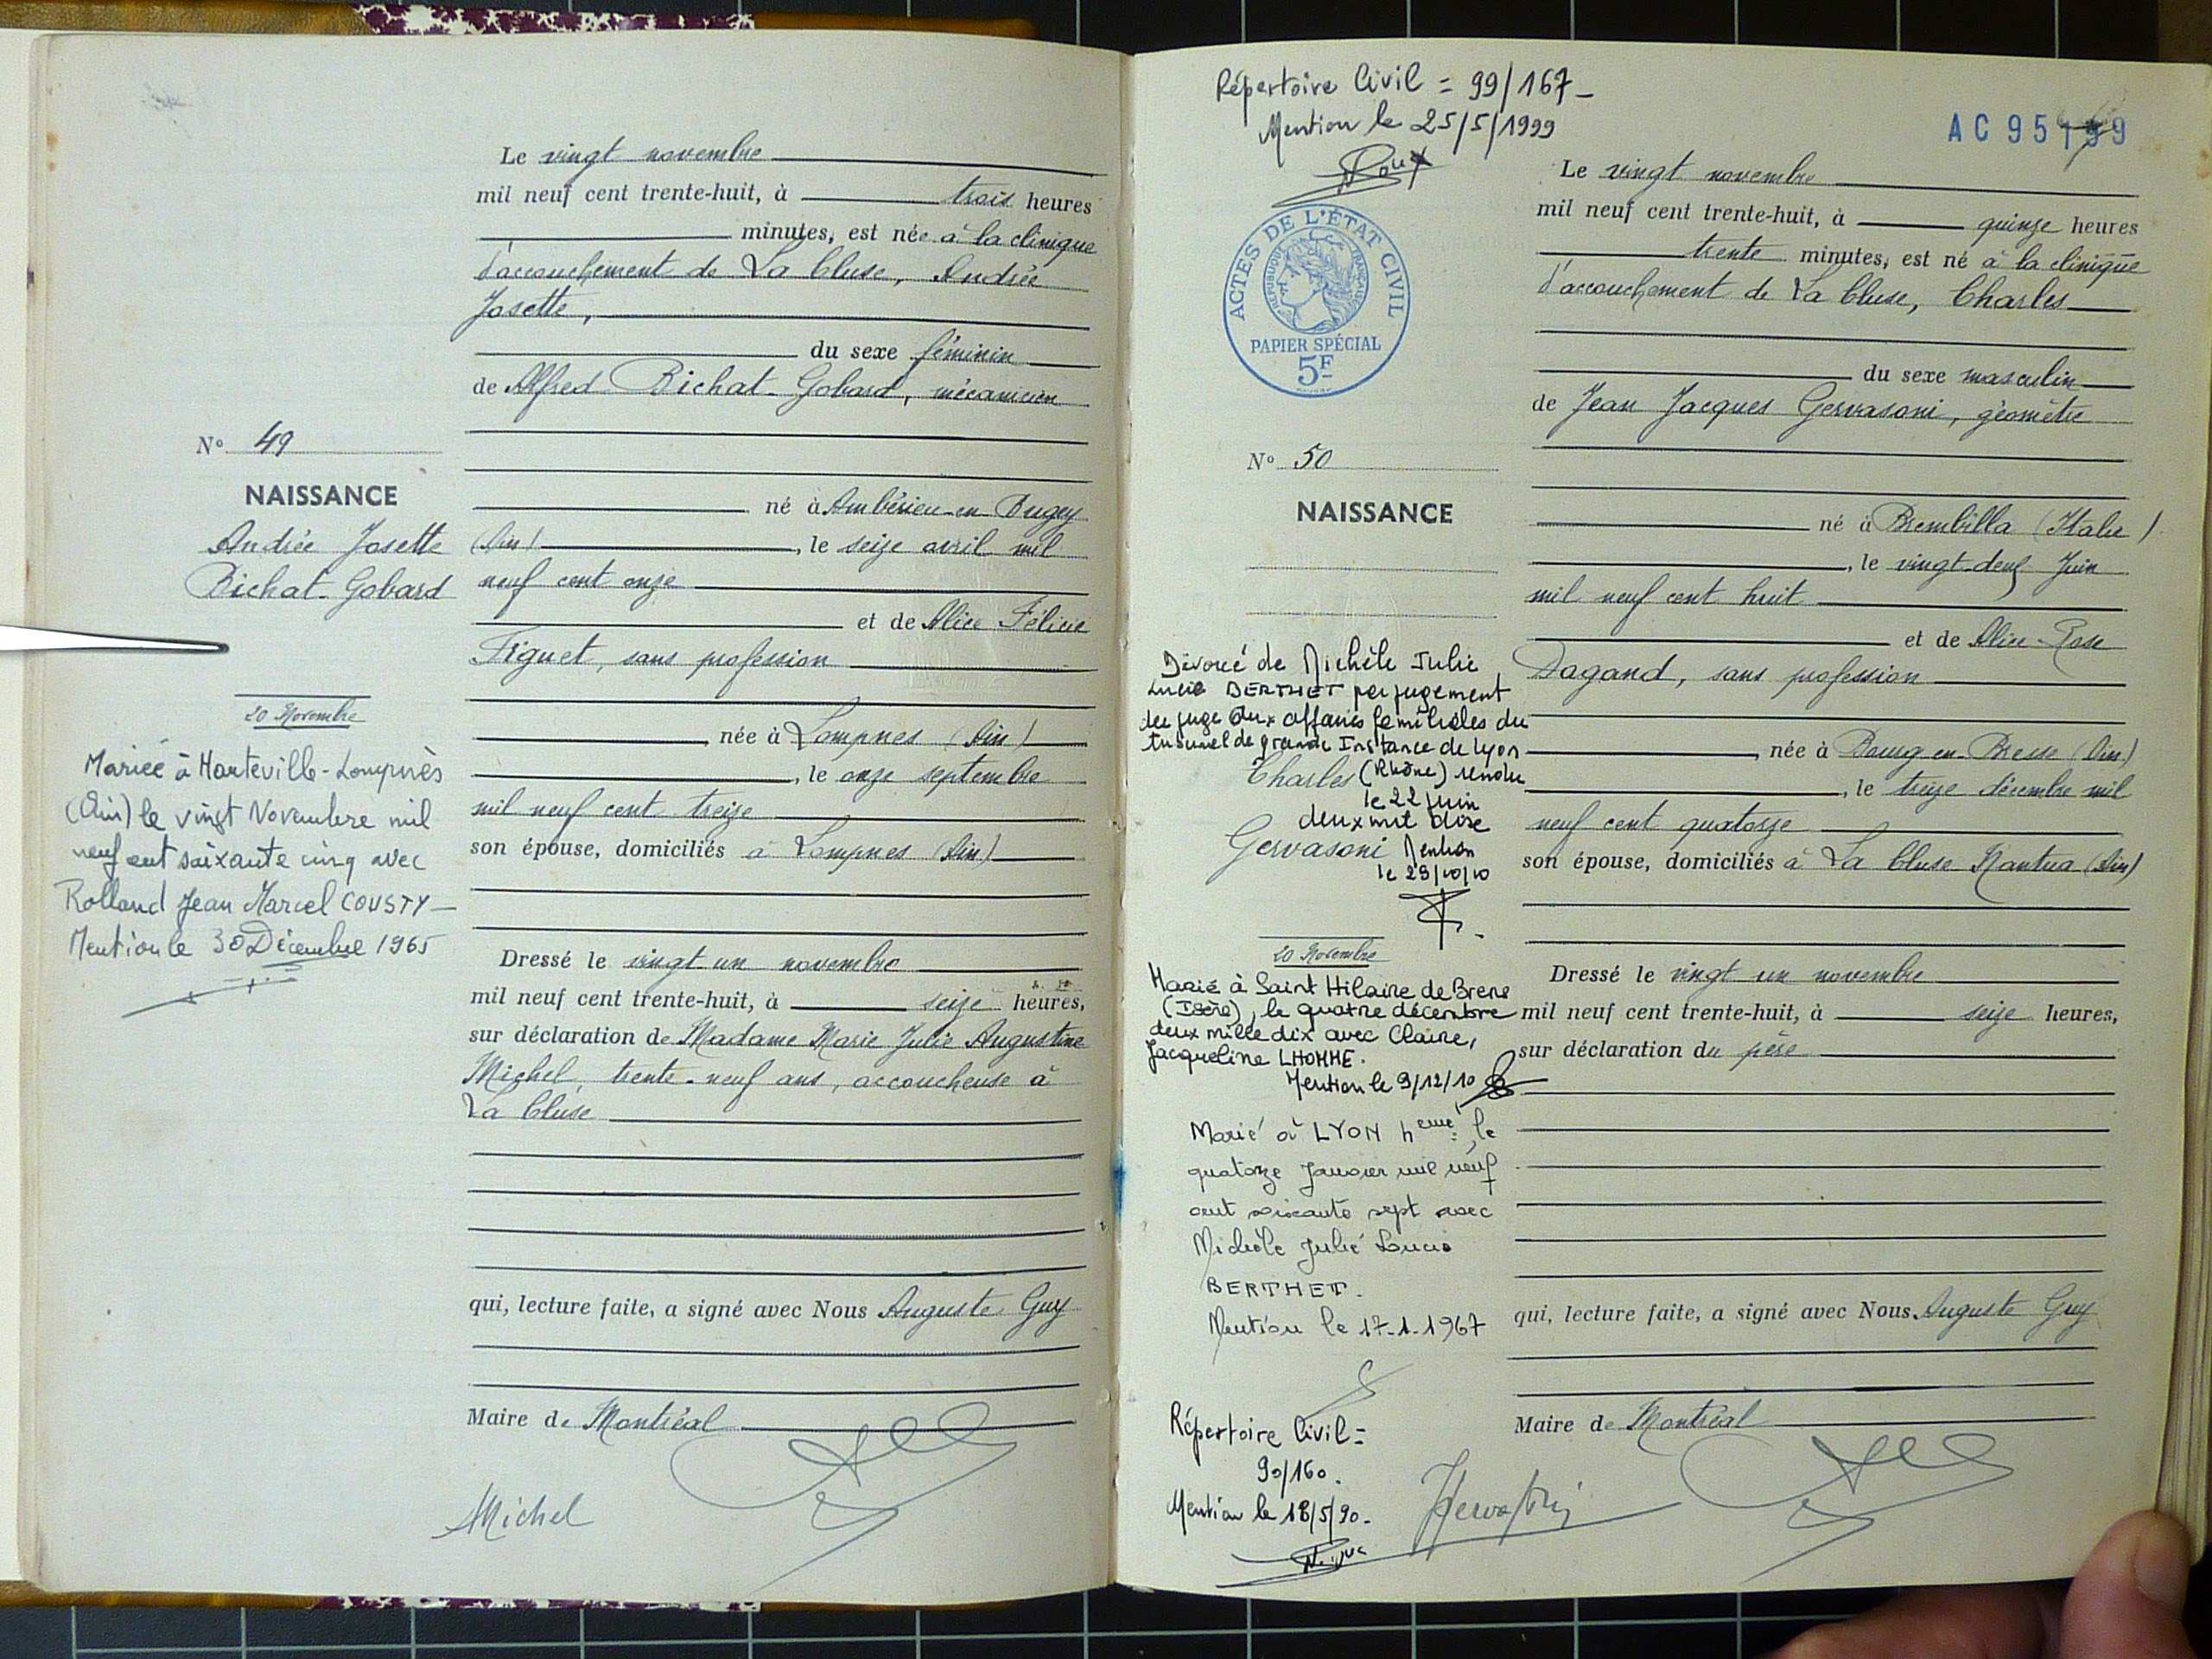 Le vingt novembre
mil neuf cent trente-huit, à trois heures
minutes, est née à la clinique
d'accouchement de La Cluse, Andrée
Josette,
du sexe féminin
de Alfred Bichat-Gobard, mécanicien
N° 49
NAISSANCE
Andrée Josette
Bichat-Gobard
né à Ambérieu-en-Bugey
(Ain), le seize avril mil
neuf cent onze
et de Alice Félicie
Figuet, sans profession
née à Lompnes (Ain)
, le onze septembre
mil neuf cent treize
son épouse, domiciliés à Lompnes (Ain)
20 Novembre
Mariée à Hauteville-Lompnès
(Ain) le vingt Novembre mil
neuf cent soixante cinq avec
Rolland Jean Marcel COUSTY —
Mention le 30 Décembre 1965
Dressé le vingt un novembre
mil neuf cent trente-huit, à seize heures,
sur déclaration de Madame Marie Julie Augustine
Michel, trente-neuf ans, accoucheuse à
La Cluse
qui, lecture faite, a signé avec Nous Auguste Guy
Maire de Montréal
Michel
Répertoire Civil = 99/167 -
Mention le 25/5/1999
AC 95199
ACTES DE L'ÉTAT CIVIL
RÉPUBLIQUE FRANÇAISE
PAPIER SPÉCIAL
5F
Le vingt novembre
mil neuf cent trente-huit, à quinze heures
trente minutes, est né à la clinique
d'accouchement de La Cluse, Charles
du sexe masculin
de Jean Jacques Gervasoni, géomètre
N° 50
NAISSANCE
Charles
Gervasoni
né à Brembilla (Italie)
, le vingt-deux Juin
mil neuf cent huit
et de Alice Rose
Dagand, sans profession
née à Bourg-en-Bresse (Ain)
, le treize décembre mil
neuf cent quatorze
son épouse, domiciliés à La Cluse Nantua (Ain)
Divorcé de Michèle Julie
Lucie BERTHET par jugement
du juge aux affaires familiales du
tribunal de grande Instance de Lyon
(Rhône) rendu
le 22 juin
deux mil dix
Mention
le 29/10/10
20 Novembre
Marié à Saint Hilaire de Brens
(Isère), le quatre décembre
deux mille dix avec Claire,
Jacqueline LHOMME.
Mention le 9/12/10
Marié à LYON 4eme le
quatorze Janvier mil neuf
cent soixante sept avec
Michèle Julie Lucie
BERTHET.
Mention le 17-1-1967
Répertoire Civil =
90/160.
Mention le 18/5/90.
Dressé le vingt un novembre
mil neuf cent trente-huit, à seize heures,
sur déclaration du père
qui, lecture faite, a signé avec Nous Auguste Guy
Maire de Montréal